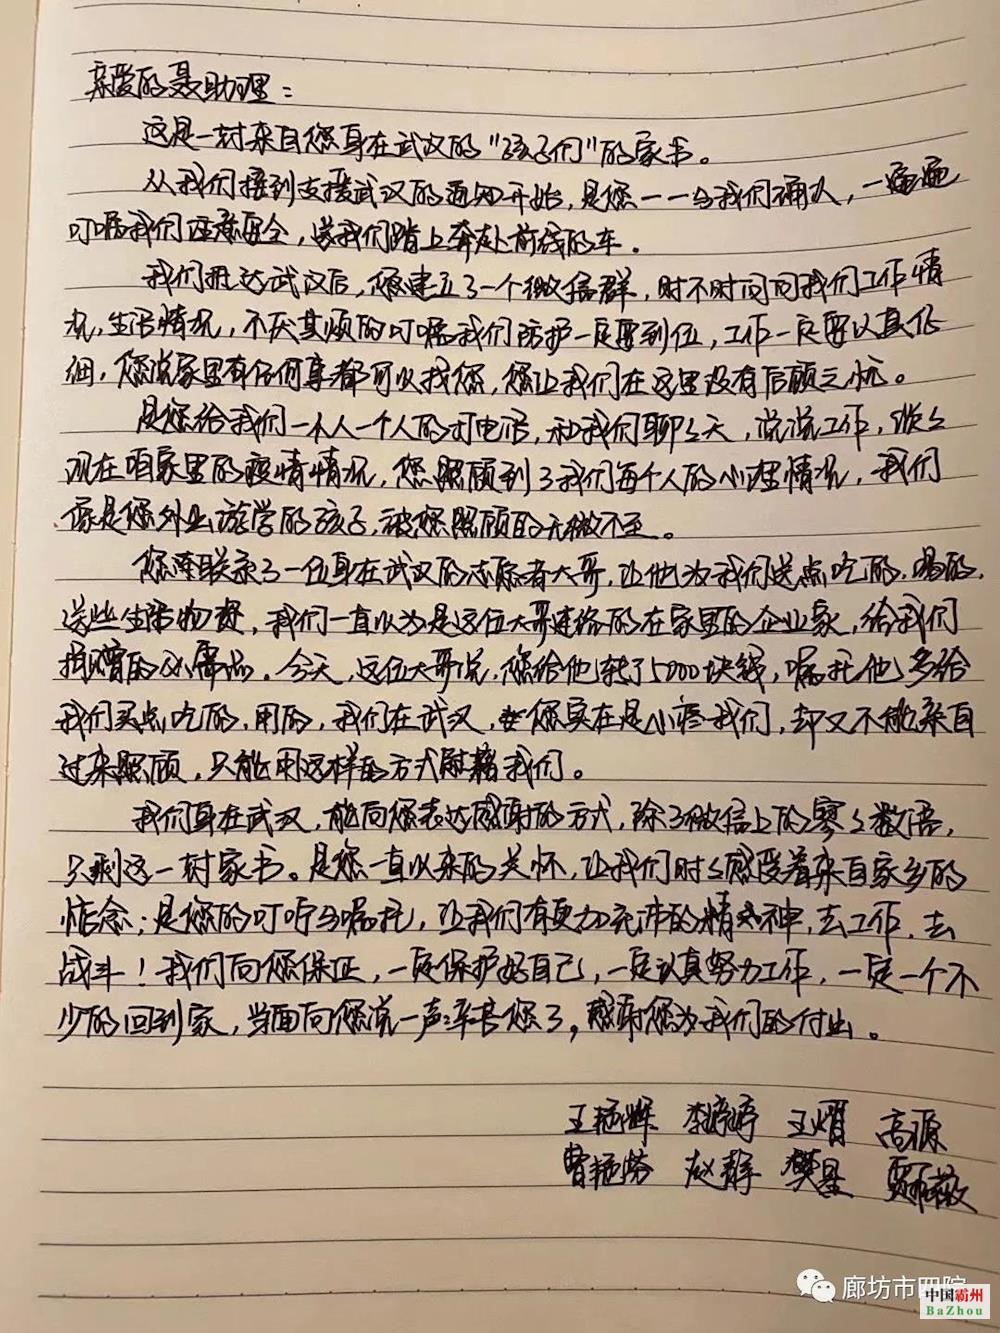 亲爱的聂助理：
这是一封来自您身在武汉的“孩子们”的家书。
从我们接到支援武汉的通知开始，是您一一与我们确认，一遍遍
叮嘱我们注意安全，送我们踏上奔赴前线的车。
我们抵达武汉后，您建立了一个微信群，时不时间问我们工作情
况，生活情况，不厌其烦的叮嘱我们防护一定要到位，工作一定要认真仔
细，您说家里有任何事都可以找您，您让我们在这里没有后顾之忧。
是您给我们一个人一个人的打电话，和我们聊聊天，说说工作，谈谈
现在咱家里的疫情情况，您照顾到了我们每个人的心理情况，我们
像是您外出游学的孩子，被您照顾的无微不至。
您联系了一位身在武汉的志愿者大哥，让他为我们送点吃的，喝的，
送些生活物资，我们一直以为是这位大哥连络的在家里的企业家，给我们
捐赠的必需品。今天，这位大哥说，您给他转了5000块钱，嘱托他多给
我们买点吃的，用的，我们在武汉，您实在是心疼我们，却又不能亲自
过来照顾，只能用这样的方式慰藉我们。
我们身在武汉，能向您表达感谢的方式，除了微信上的寥寥数语，
只剩这一封家书。是您一直以来的关怀，让我们时时感受着来自家乡的
惦念；是您的叮咛与嘱托，让我们有更加充沛的精神，去工作，去
战斗！我们向您保证，一定保护好自己，一定认真努力工作，一定一个不
少的回到家，当面向您说一声：辛苦您了，感谢您为我们的付出。
王艳辉 李婷婷 王熠 高源
曾艳芬 赵静 樊星
廊坊市四院
中国霸州
BaZhou